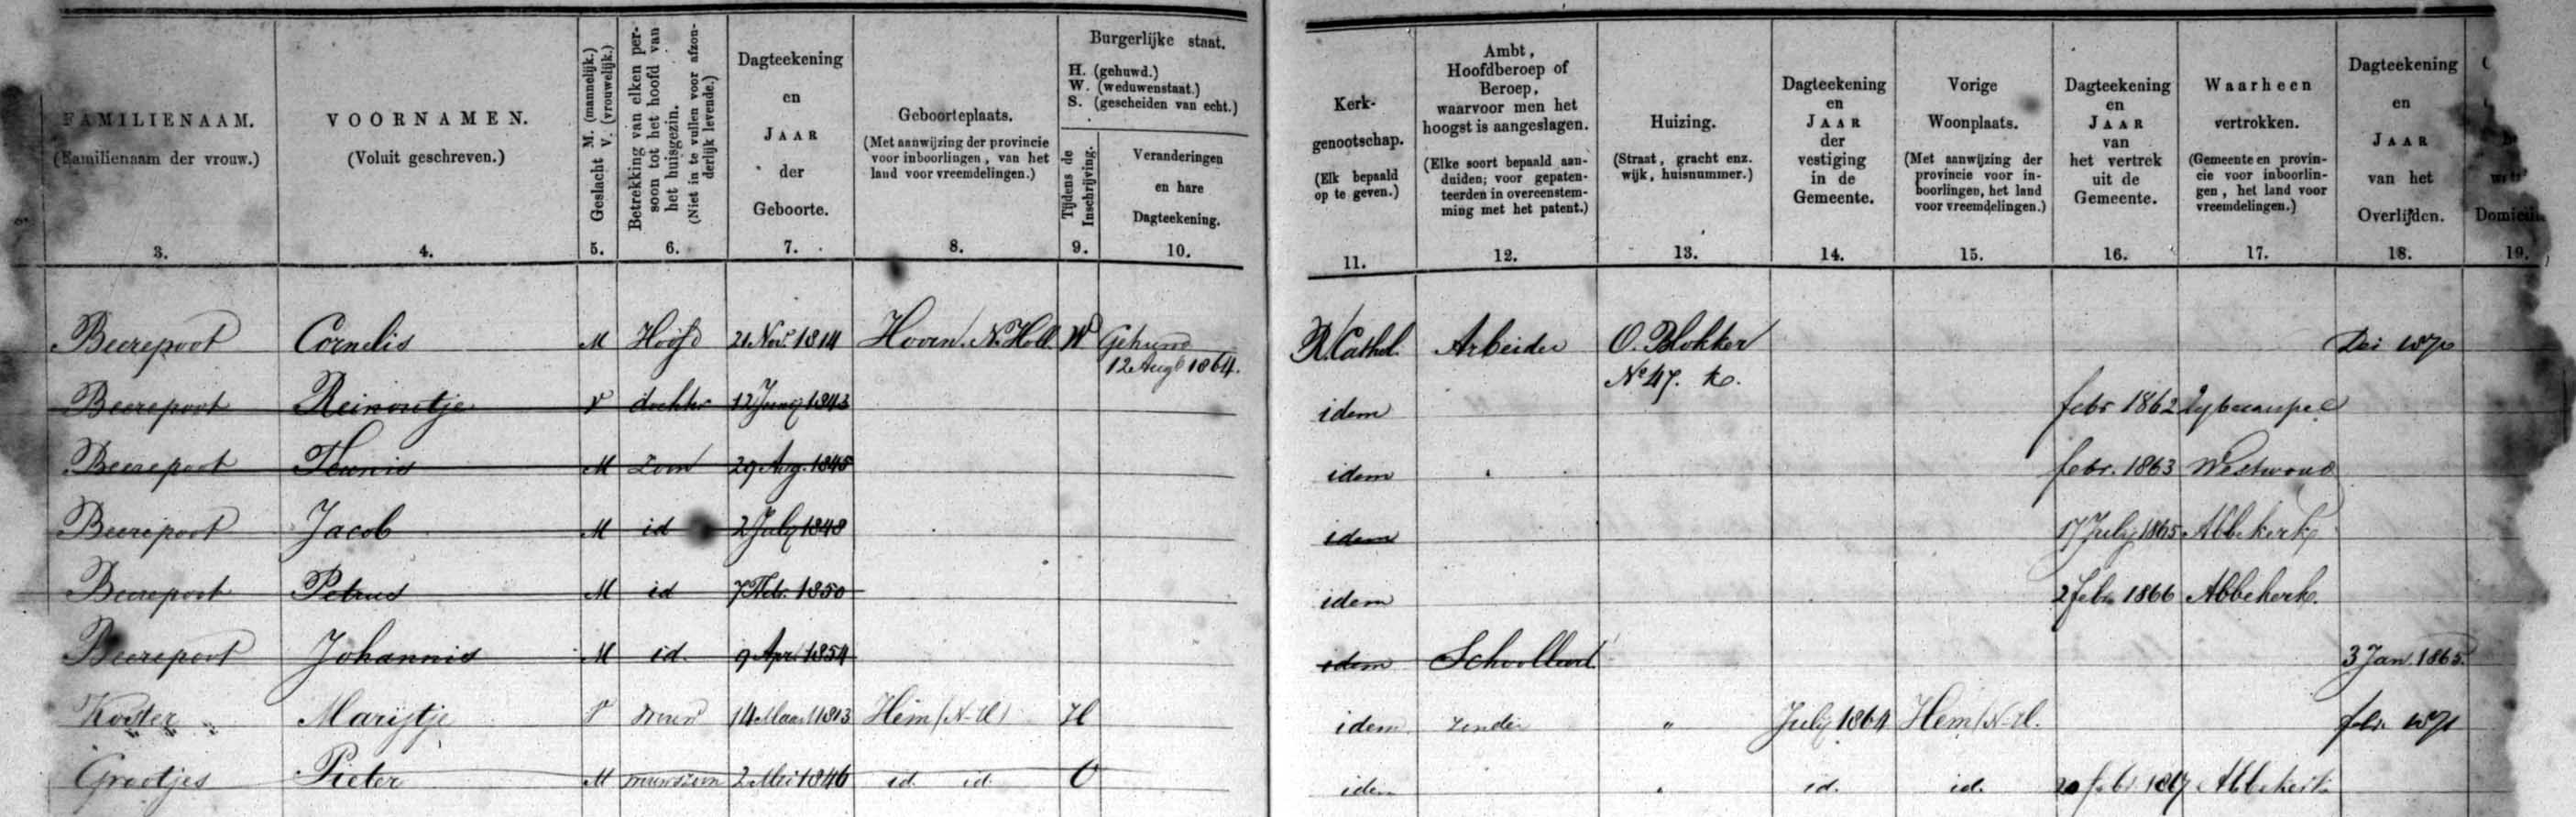 FAMILIENAAM.
(Familienaam der vrouw.)
3.
VOORNAMEN.
(Voluit geschreven.)
4.
Geslacht M. (mannelijk.)
V. (vrouwelijk.)
5.
Betrekking van elken per-
soon tot het hoofd van
het huisgezin.
(Niet in te vullen voor afzon-
derlijk levende.)
6.
Dagteekening
en
JAAR
der
Geboorte.
7.
Geboorteplaats.
(Met aanwijzing der provincie
voor inboorlingen, van het
land voor vreemdelingen.)
8.
Burgerlijke staat.
H. (gehuwd.)
W. (weduwenstaat.)
S. (gescheiden van echt.)
Tijdens de
Inschrijving.
9.
Veranderingen
en hare
Dagteekening.
10.
Kerk-
genootschap.
(Elk bepaald
op te geven.)
11.
Ambt,
Hoofdberoep of
Beroep,
waarvoor men het
hoogst is aangeslagen.
(Elke soort bepaald aan-
duiden; voor gepaten-
teerden in overeenstem-
ming met het patent.)
12.
Huizing.
(Straat, gracht enz.
wijk, huisnummer.)
13.
Dagteekening
en
JAAR
der
vestiging
in de
Gemeente.
14.
Vorige
Woonplaats.
(Met aanwijzing der
provincie voor in-
boorlingen, het land
voor vreemdelingen.)
15.
Dagteekening
en
JAAR
van
het vertrek
uit de
Gemeente.
16.
Waarheen
vertrokken.
(Gemeente en provin-
cie voor inboorlin-
gen, het land voor
vreemdelingen.)
17.
Dagteekening
en
JAAR
van het
Overlijden.
18.
Domicili
19.
Beerepoot Cornelis M Hoofd 21 Nov. 1814 Hoorn N. Holl. W Gehuwd R. Cathol. Arbeider O. Blokker
12 Aug 1864. No 47.
Beerepoot Reinoutje V dochter 12 Juny 1843 idem febr 1862
Beerepoot Theunis M zoon 29 Aug. 1845 idem febr. 1863 Westwoud
Beerepoot Jacob M id 2 July 1848 idem 17 July 1865 Abbekerk
Beerepoot Petrus M id 1850 idem 2 febr 1866 Abbekerk.
Beerepoot Johannis M id. 9 Apr. 1854 idem 3 Jan. 1865.
Koster Marijtje V vrouw 14 Maart 1813 Hem (N-H) H idem zonder " July 1864 Hem (N-H. febr.
Grootjes Pieter M 2 Mei 1846 id. id. O idem " id. id. 20 febr 1867 Abbekerk